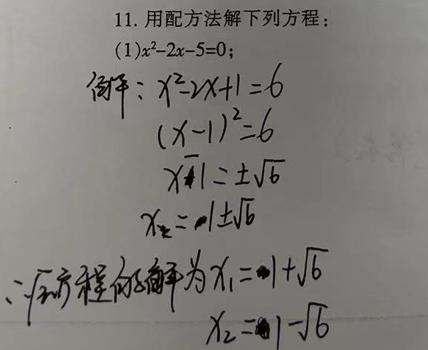 11. 用配方法解下列方程：
(1)x²-2x-5=0;
解：x²-2x+1=6
(x-1)²=6
x-1=±√6
x=1±√6
∴原方程的解为x₁=1+√6
x₂=1-√6